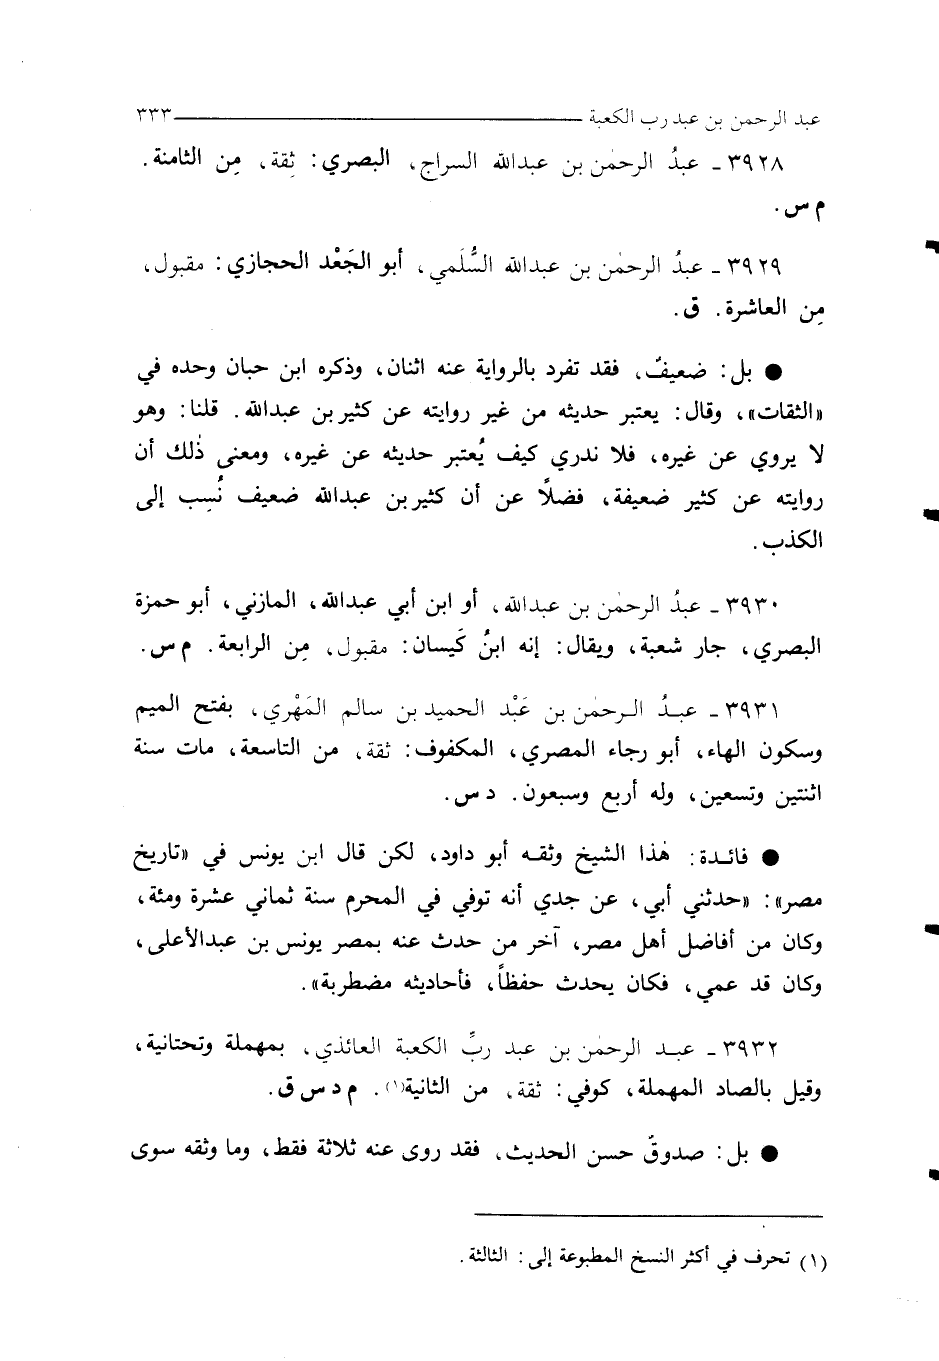 عبد الرحمن بن عبد رب الكعبة ٣٣٣
٣٩٢٨ ـ عبدُ الرحمٰن بن عبدالله السراج، البصري: ثِقة، مِن الثامنة.
م س.
٣٩٢٩ ـ عبدُ الرحمٰن بن عبدالله السُّلَمي، أبو الجَعْد الحجازي: مقبول،
مِن العاشرة. ق.
● بل: ضعيفٌ، فقد تفرد بالرواية عنه اثنان، وذكره ابن حبان وحده في
«الثقات»، وقال: يعتبر حديثه من غير روايته عن كثير بن عبدالله. قلنا: وهو
لا يروي عن غيره، فلا ندري كيف يُعتبر حديثه عن غيره، ومعنى ذٰلك أن
روايته عن كثير ضعيفة، فضلًا عن أن كثير بن عبدالله ضعيف نُسِب إلى
الكذب.
٣٩٣٠ ـ عبدُ الرحمٰن بن عبدالله، أو ابن أبي عبدالله، المازني، أبو حمزة
البصري، جار شعبة، ويقال: إنه ابنُ كَيسان: مقبول، مِن الرابعة. م س.
٣٩٣١ ـ عبدُ الرحمٰن بن عَبْد الحميد بن سالم المَهْري، بفتح الميم
وسكون الهاء، أبو رجاء المصري، المكفوف: ثقة، من التاسعة، مات سنة
اثنتين وتسعين، وله أربع وسبعون. د س.
● فائدة: هٰذا الشيخ وثقه أبو داود، لكن قال ابن يونس في «تاريخ
مصر»: «حدثني أبي، عن جدي أنه توفي في المحرم سنة ثماني عشرة ومئة،
وكان من أفاضل أهل مصر، آخر من حدث عنه بمصر يونس بن عبدالأعلى،
وكان قد عمي، فكان يحدث حفظاً، فأحاديثه مضطربة».
٣٩٣٢ ـ عبد الرحمٰن بن عبد ربِّ الكعبة العائذي، بمهملة وتحتانية،
وقيل بالصاد المهملة، كوفي: ثقة، من الثانية(١). م د س ق.
● بل: صدوقٌ حسن الحديث، فقد روى عنه ثلاثة فقط، وما وثقه سوى
(١) تحرف في أكثر النسخ المطبوعة إلى: الثالثة.